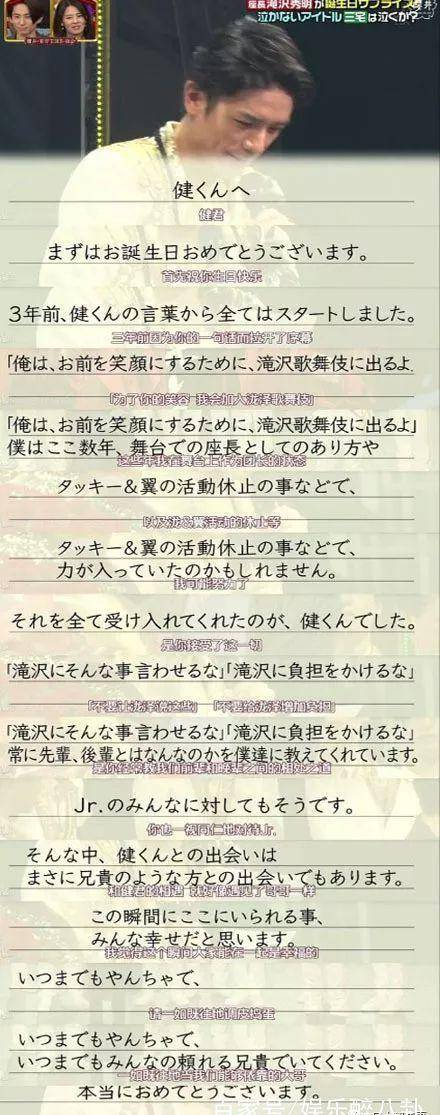 座長滝沢秀明が誕生日サプライズ
泣かないアイドル三宅は泣くか?
健くんへ
健君
まずはお誕生日おめでとうございます。
首先祝你生日快乐
3年前、健くんの言葉から全てはスタートしました。
三年前因为你的一句话而拉开了序幕
「俺は、お前を笑顔にするために、滝沢歌舞伎に出るよ
「为了你的笑容 我会加入泷泽歌舞伎」
「俺は、お前を笑顔にするために、滝沢歌舞伎に出るよ」
僕はここ数年、舞台での座長としてのあり方や
这些年我在舞台上作为团长的状态
タッキー&翼の活動休止の事などで、
以及泷&翼活动的休止等
タッキー&翼の活動休止の事などで、
力が入っていたのかもしれません。
我可能努力了
それを全て受け入れてくれたのが、健くんでした。
是你接受了这一切
「滝沢にそんな事言わせるな」「滝沢に負担をかけるな」
「不要让泷泽说这些」 「不要给泷泽增加负担」
「滝沢にそんな事言わせるな」「滝沢に負担をかけるな」
常に先輩、後輩とはなんなのかを僕達に教えてくれています。
是你经常教我们前辈和晚辈之间的相处之道
Jr.のみんなに対してもそうです。
你也一视同仁地对待Jr.
そんな中、健くんとの出会いは
まさに兄貴のような方との出会いでもあります。
和健君的相遇 就好像遇见了哥哥一样
この瞬間にここにいられる事、
みんな幸せだと思います。
我觉得这个瞬间大家能在一起是幸福的
いつまでもやんちゃで、
请一如既往地调皮捣蛋
いつまでもやんちゃで、
いつまでもみんなの頼れる兄貴でいてください。
一如既往地当我们能够依靠的大哥
本当におめでとうございます。
百家号/娱乐醉八卦